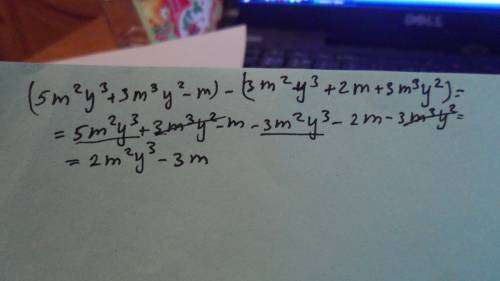 DELL
(5m²y³+3m³y²-m)-(3m²y³+2m+3m³y²)=
=5m²y³+3m³y²-m-3m²y³-2m-3m³y²=
=2m²y³-3m